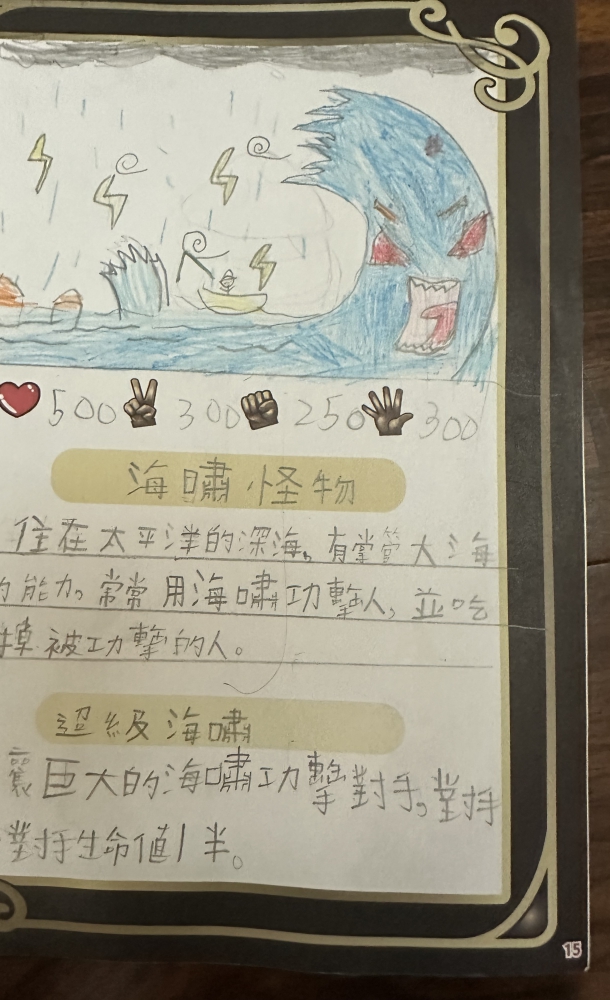 500 300 250 300
海嘯怪物
住在太平洋的深海。有掌管大海
的能力。常常用海嘯功擊人，並吃
掉被功擊的人。
超級海嘯
讓巨大的海嘯功擊對手。對手
對手生命值1半。
15